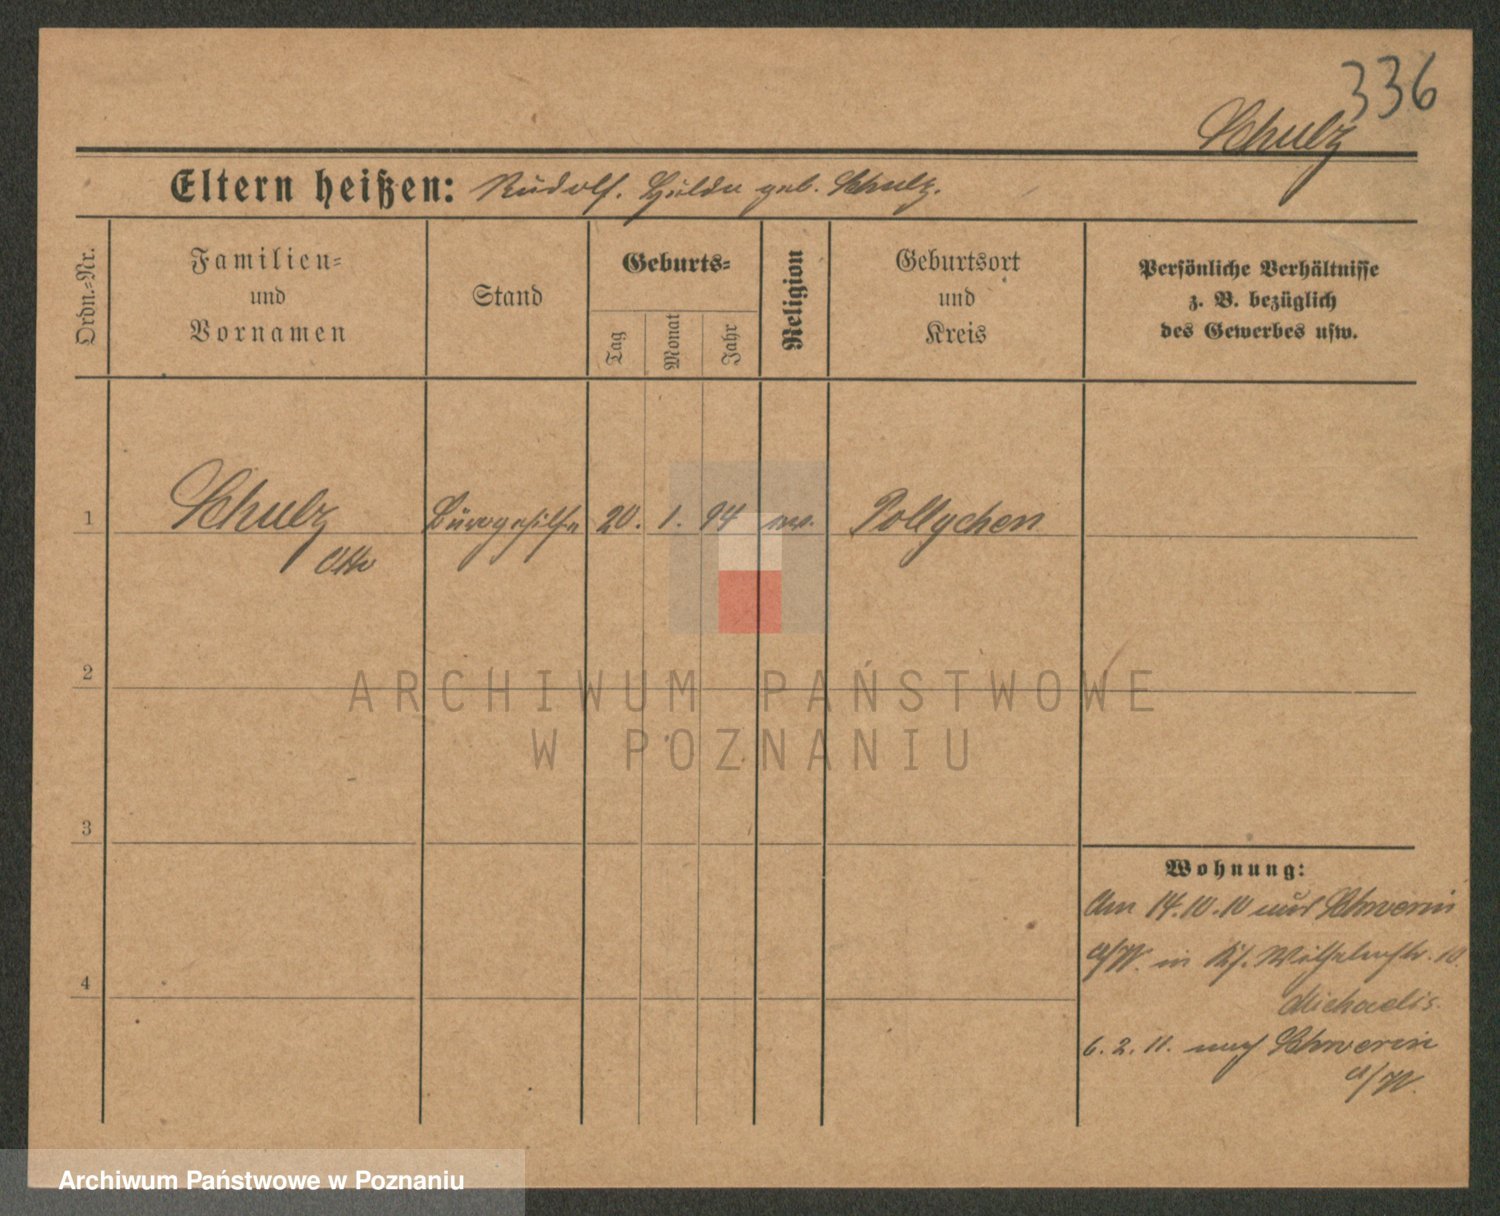 336
Schulz
Eltern heißen: Rudolf. Hulda geb. Schulz.
Ordn.-Nr.
Familien-
und
Vornamen
Stand
Geburts-
Tag
Monat
Jahr
Religion
Geburtsort
und
Kreis
Persönliche Verhältnisse
z. B. bezüglich
des Gewerbes usw.
1 Schulz Bürogehilfe 20. 1. 94 ev. Pollychen
Otto
2
ARCHIWUM PAŃSTWOWE
W POZNANIU
3
Wohnung:
Am 14.10.10 aus Schwerin
a/W. in Wilhelmstr. 10.
4
Michaelis.
6. 2. 11. nach Schwerin
a/W.
Archiwum Państwowe w Poznaniu